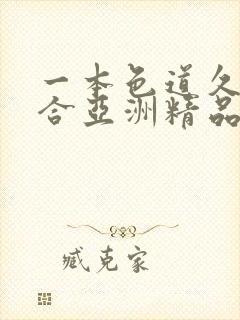 一本色道久
合亞洲精品
臧克家